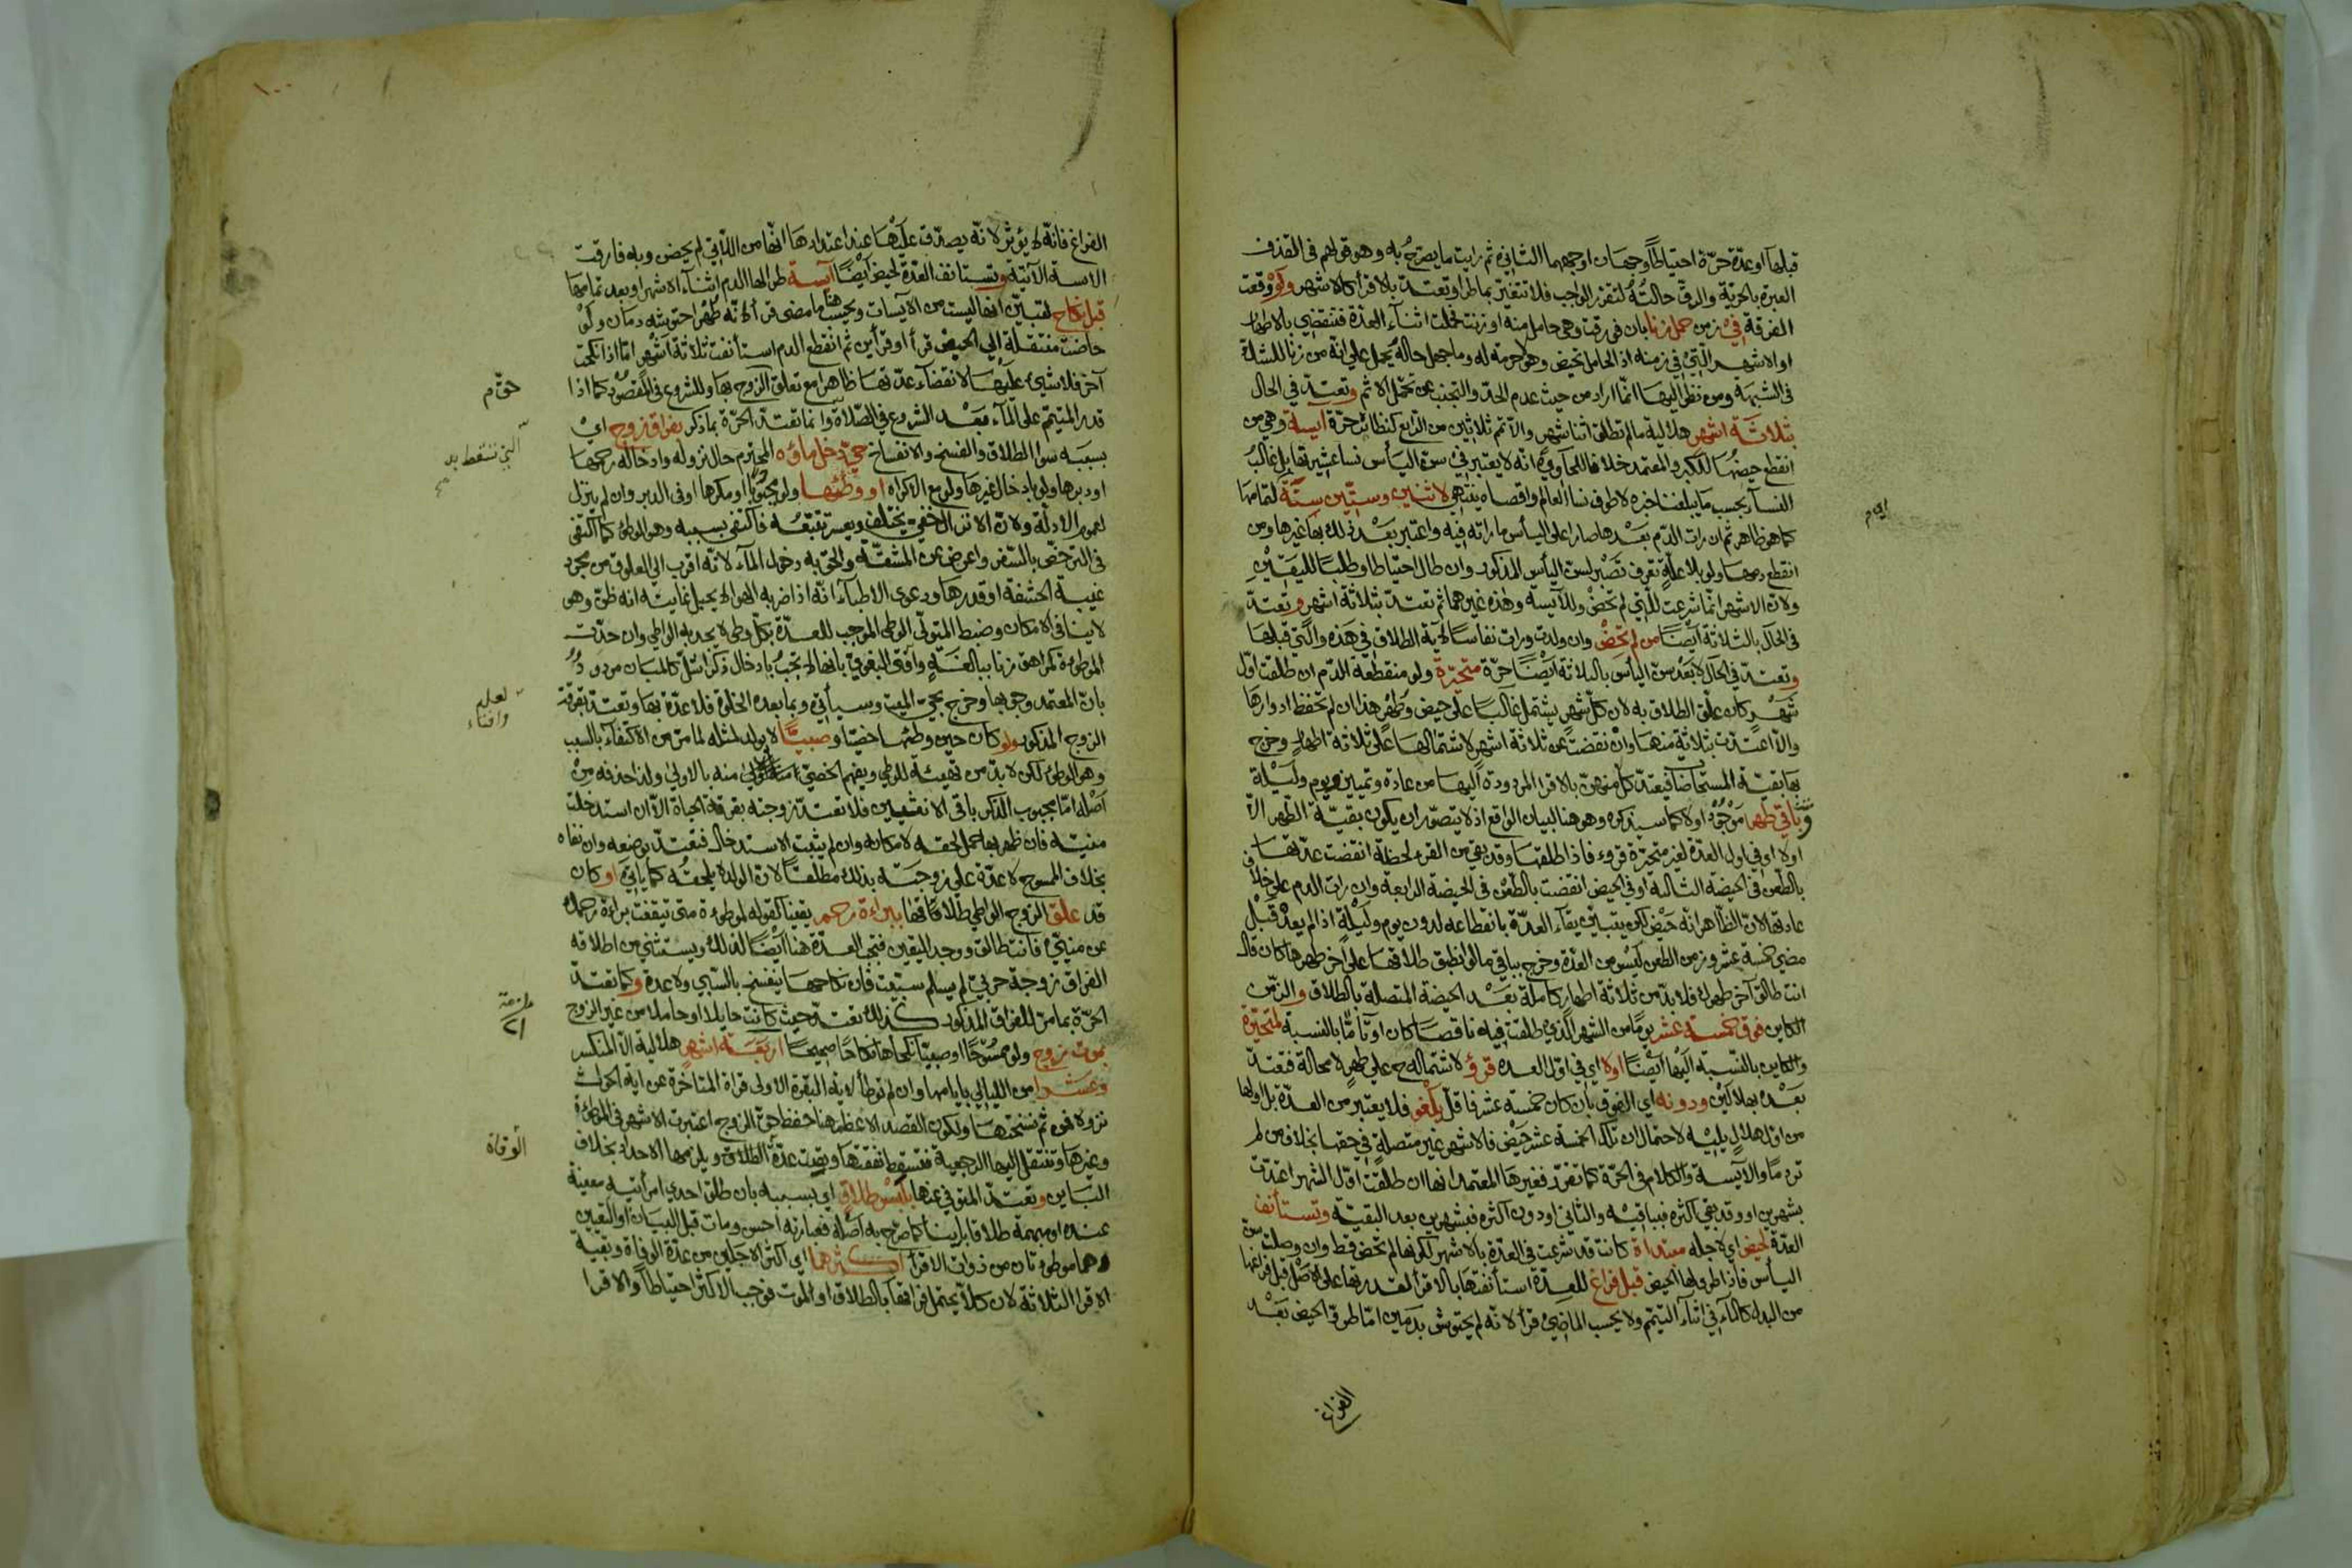 قبلها او عدّة حرّة احتياطاً وجهان اوجههما الثاني ثم رايت ما يصرّح به وهو قولهم في القذف
العبرة بالحرّية والرقّ حالته لتقرر الواجب فلا تتغير بما طرا وتعتدّ بالاقرأ كالاشهر ولو وقعت
الفرقة في زمن حمل زنا بان فورقت وهي حامل منه او زنت فحملت اثناء العدّة فتنقضي بالاطهار
او الاشهر التي في زمنه اذ الحامل تحيض وهو لا حرمة له وما جهل حاله يحمل على انه من زنا للشك
في الشبهة ومن نظر اليها انما اراد من حيث عدم الحدّ والتجنب عن تحمّل الاثم وتعتدّ في الحال
بثلاثة اشهر هلالية ما لم تطلق اثنا شهر والا تمّ ثلاثين من الرابع كنظائره حرّة آيسة وهي من
انقطع حيضها للكبر والمعتمد خلافا للحاوي انه لا يعتبر في سنّ الياس نسا عشيرتها بل غالب
النساء بحسب ما يبلغنا خبره لا طوف نسا العالم واقصاه ينتهي لاثنين وستين سنة لتمامها
كما هو ظاهر ثم ان رات الدّم بعدها صار اعلى اليأس ما راته فيه واعتبر بعد ذلك بها غيرها ومن
انقطع دمها ولو بلا علّة تعرف تصبر لسنّ اليأس المذكور وان طال احتياطا وطلبا لليقين
ولان الاشهر انما شرعت للتي لم تحض وللآيسة وهذه غيرهما ثم تعتدّ بثلاثة اشهر وتعتدّ
في الحال بالثلاثة ايضا من لم تحض وان ولدت ورات نفاسا لاية الطلاق في هذه والتي قبلها
وتعتدّ في الحال لا بعد سنّ اليأس بالثلاثة ايضا حرّة متحيّرة ولو منقطعة الدّم ان طلقت اوّل
شهر كان علّق الطلاق به لان كلّ شهر يشتمل غالبا على حيض وطهر هذا ان لم تحفظ ادوارها
والا اعتدّت بثلاثة منها وان نقضت عن ثلاثة اشهر لاشتمالها على ثلاثة اطهار وخرج
بها بقيّة المستحاضا فيعتدّ كل منهنّ بالاقرا المردودة اليها من عادة وتمييز ويوم وليلة
وباقي طهر اولا كما سيذكره وهو هنا لبيان الواقع اذ لا يتصوّر ان يكون بقيّة الطّهر الا
اولا اي في اول العدّة لغير متحيّرة قروء فاذا طلقها وقد بقي من القرء لحظة انقضت عدّتها
بالطعن في الحيضة الثالثة او في الحيض انقضت بالطّعن في الحيضة الرابعة وان رات الدم على خلاف
عادتها لان الظّاهر انه حيض لكن يتبيّن بقاء العدّة بانقطاعه لدون يوم وليلة اذا لم يعد قبل
مضي خمسة عشر وزمن الطعن ليس من العدّة وخرج بباقي ما لو انطبق طلاقها على آخر طهرها كان قال
انت طالق آخر طهرك فلا بدّ من ثلاثة اطهار كاملة بعد الحيضة المتصلة بالطلاق والزمن
الكاين فوق خمسة عشر يوما من الشهر الذي طلقت فيه ناقصا كان او تامّا بالنسبة لمتحيّرة
والكاين بالنسبة اليها ايضا اولا اي في اوّل العده قرؤ لاشتماله ح على طهر لا محالة فتعتدّ
بعده بهلالين ودونه اي الفوق بان كان خمسة عشر فاقلّ يلغو فلا يعتبر من العدّة بل اولها
من اوّل هلال يليه لاحتمال ان تلك الخمسة عشر حيض فالاشهر غير متصلة في حقها بخلاف من لم
تر دما والآيسة والكلام في الحرّة كما تقرّر فغيرها المعتمد انها ان طلقت اوّل الشهر اعتدّت
بشهرين او وقد بقي اكثره فبباقيه والثاني او دون اكثره فبشهرين بعد البقيّة وتستأنف
العدّة لحيض اي لاجله مبتداة كانت قد شرعت في العدّة بالاشهر لكونها لم تحض قط وان وصلت سنّ
اليأس فاذا طرو لها الحيض قبل فراغ للعدّة استأنفتها بالاقرأ لقدرتها على الاصل قبل فراغها
من البدل كالماء في اثناء التيمّم ولا يحسب الماضي قرأ لانه لم يحتوش بدمين امّا طروّ الحيض بعد
الفراغ
الفراغ فانه لا يؤثر لانه يصدق عليها عند اعتدادها انها من اللائي لم يحضن وبه فارقت
الآيسة الآتية وتستانف العدّة لحيض ايضا آيسة طرا لها الدم اثناء الاشهر او بعد تمامها
قبل نكاح لتبيّن انها ليست من الآيسات ويحسب هنا ما مضى قرأ لانه طهر احتوشه دمان ولو
حاضت منتقلة الي الحيض قرأ او قرأين ثم انقطع الدم استأنفت ثلاثة اشهر امّا اذا نكحت
آخر فلا شيء عليها لانقضاء عدّتها ظاهرا مع تعلق الزوج بها وللشروع في المقصود كما اذا
حق م
قدر المتيمّم على الماء بعد الشروع في الصّلاة وانما تعتدّ الحرّة بما ذكر بفراق زوج اي
بسببه سوا الطلاق والفسخ والانفساخ حيّ دخل ماؤه المحترم حال نزوله وادخاله رحمها
او دبرها ولو بادخال غيرها ولو مع الاكراه او وطئها ولو مجنونا او مكرها او في الدبر وان لم ينزل
لعموم الادلّة ولان الانزال خفيّ يختلف ويعسر تتبّعه فاكتفى بسببه وهو الوطئ كما اكتفى
في الترخّص بالسّفر واعرض عن المشقّة والحق به دخول الماء لانه اقرب الي العلوق من مجرد
غيبة الحشفة او قدرها ودعوى الاطباء انه اذا ضربه الهوا لا يحبل غايته انه ظنّ وهو
لا ينافي الامكان وضبط المتولّي الوطئ الموجب للعدّة بكلّ وطئ لا يحد به الواطي وان حدّت
الموطوءة كمراهق زنا ببالغة وافتى البغوي بانها لا تجب بادخال ذكر اشلّ كالمبان مردود
بان المعتمد وجوبها وخرج بحيّ الميت وسيأتي وبما بعده الخلوة فلا عدّة بها وتعتدّ بفرقة
الزوج المذكور ولو كان حين وطئها خصيّا وصبيّا لا يولد لمثله لما مرّ من الاكتفاء بالسبب
وهو الوطئ لكن لا بدّ من تهيئه للوطئ ويفهم الخصيّ منه بالاولى ولذا حذفه من
اصله امّا مجبوب الذكر باقي الانثيين فلا تعتدّ زوجته بفرقة الحياة الا ان استدخلت
منيّه فان ظهر بها حمل لحقه لامكانه وان لم يثبت الاستدخال فتعتدّ بوضعه وان نفاه
بخلاف الممسوح لا عدّة على زوجته بذلك مطلقا لان الولد لا يلحقه كما ياتي او كان
قد علّق الزوج الواطي طلاقا فيها ببراءة رحم يقينا كقوله لموطوءة متى تيقنت براءة رحمك
عن منيّي فانت طالق ووجد اليقين فتجب العدّة هنا ايضا لذلك ويستثني من اطلاقه
الفراق زوجة حربيّ لم يسلم سبيت فان نكاحها ينفسخ بالسّبي ولا عدة وكما تعتدّ
الحرّة بما مرّ للفراق المذكور كذلك تعتدّ حيث كانت حايلا او حاملا من غير الزوج
بموت زوج ولو ممسوحا او صبيّا نكحاها نكاحا صحيحا اربعة اشهر هلالية الا المنكسر
وعشرا من الليالي بايامها وان لم توطأ لاية البقرة الاولى قراة المتاخرة عن اية الحول
نزولا فهي ثم نسختها ولكون القصد الاعظم هنا حفظ حقّ الزوج اعتبرت الاشهر في الموطوءة
وغيرها وتنتقل اليها الرجعية فتسقط نفقتها وبقيت عدّة الطلاق ويلزمها الاحداد بخلاف
الوفاة
الباين وتعتدّ المتوفي عنها بلبس طلاق اي بسببه بان طلق احدي امراتيه معينة
عنده او مبهمة طلاقا باينا كما صرّح به اصله فعبارته احسن ومات قبل البيان او التعيين
وهما موطوءتان من ذوات الاقرأ اكثرهما اي اكثر الاجلين من عدّة الوفاة وبقية
الاقرا الثلاثة لان كلّا يحتمل فراقها بالطلاق او الموت فوجب الاكثر احتياطا والاقرا